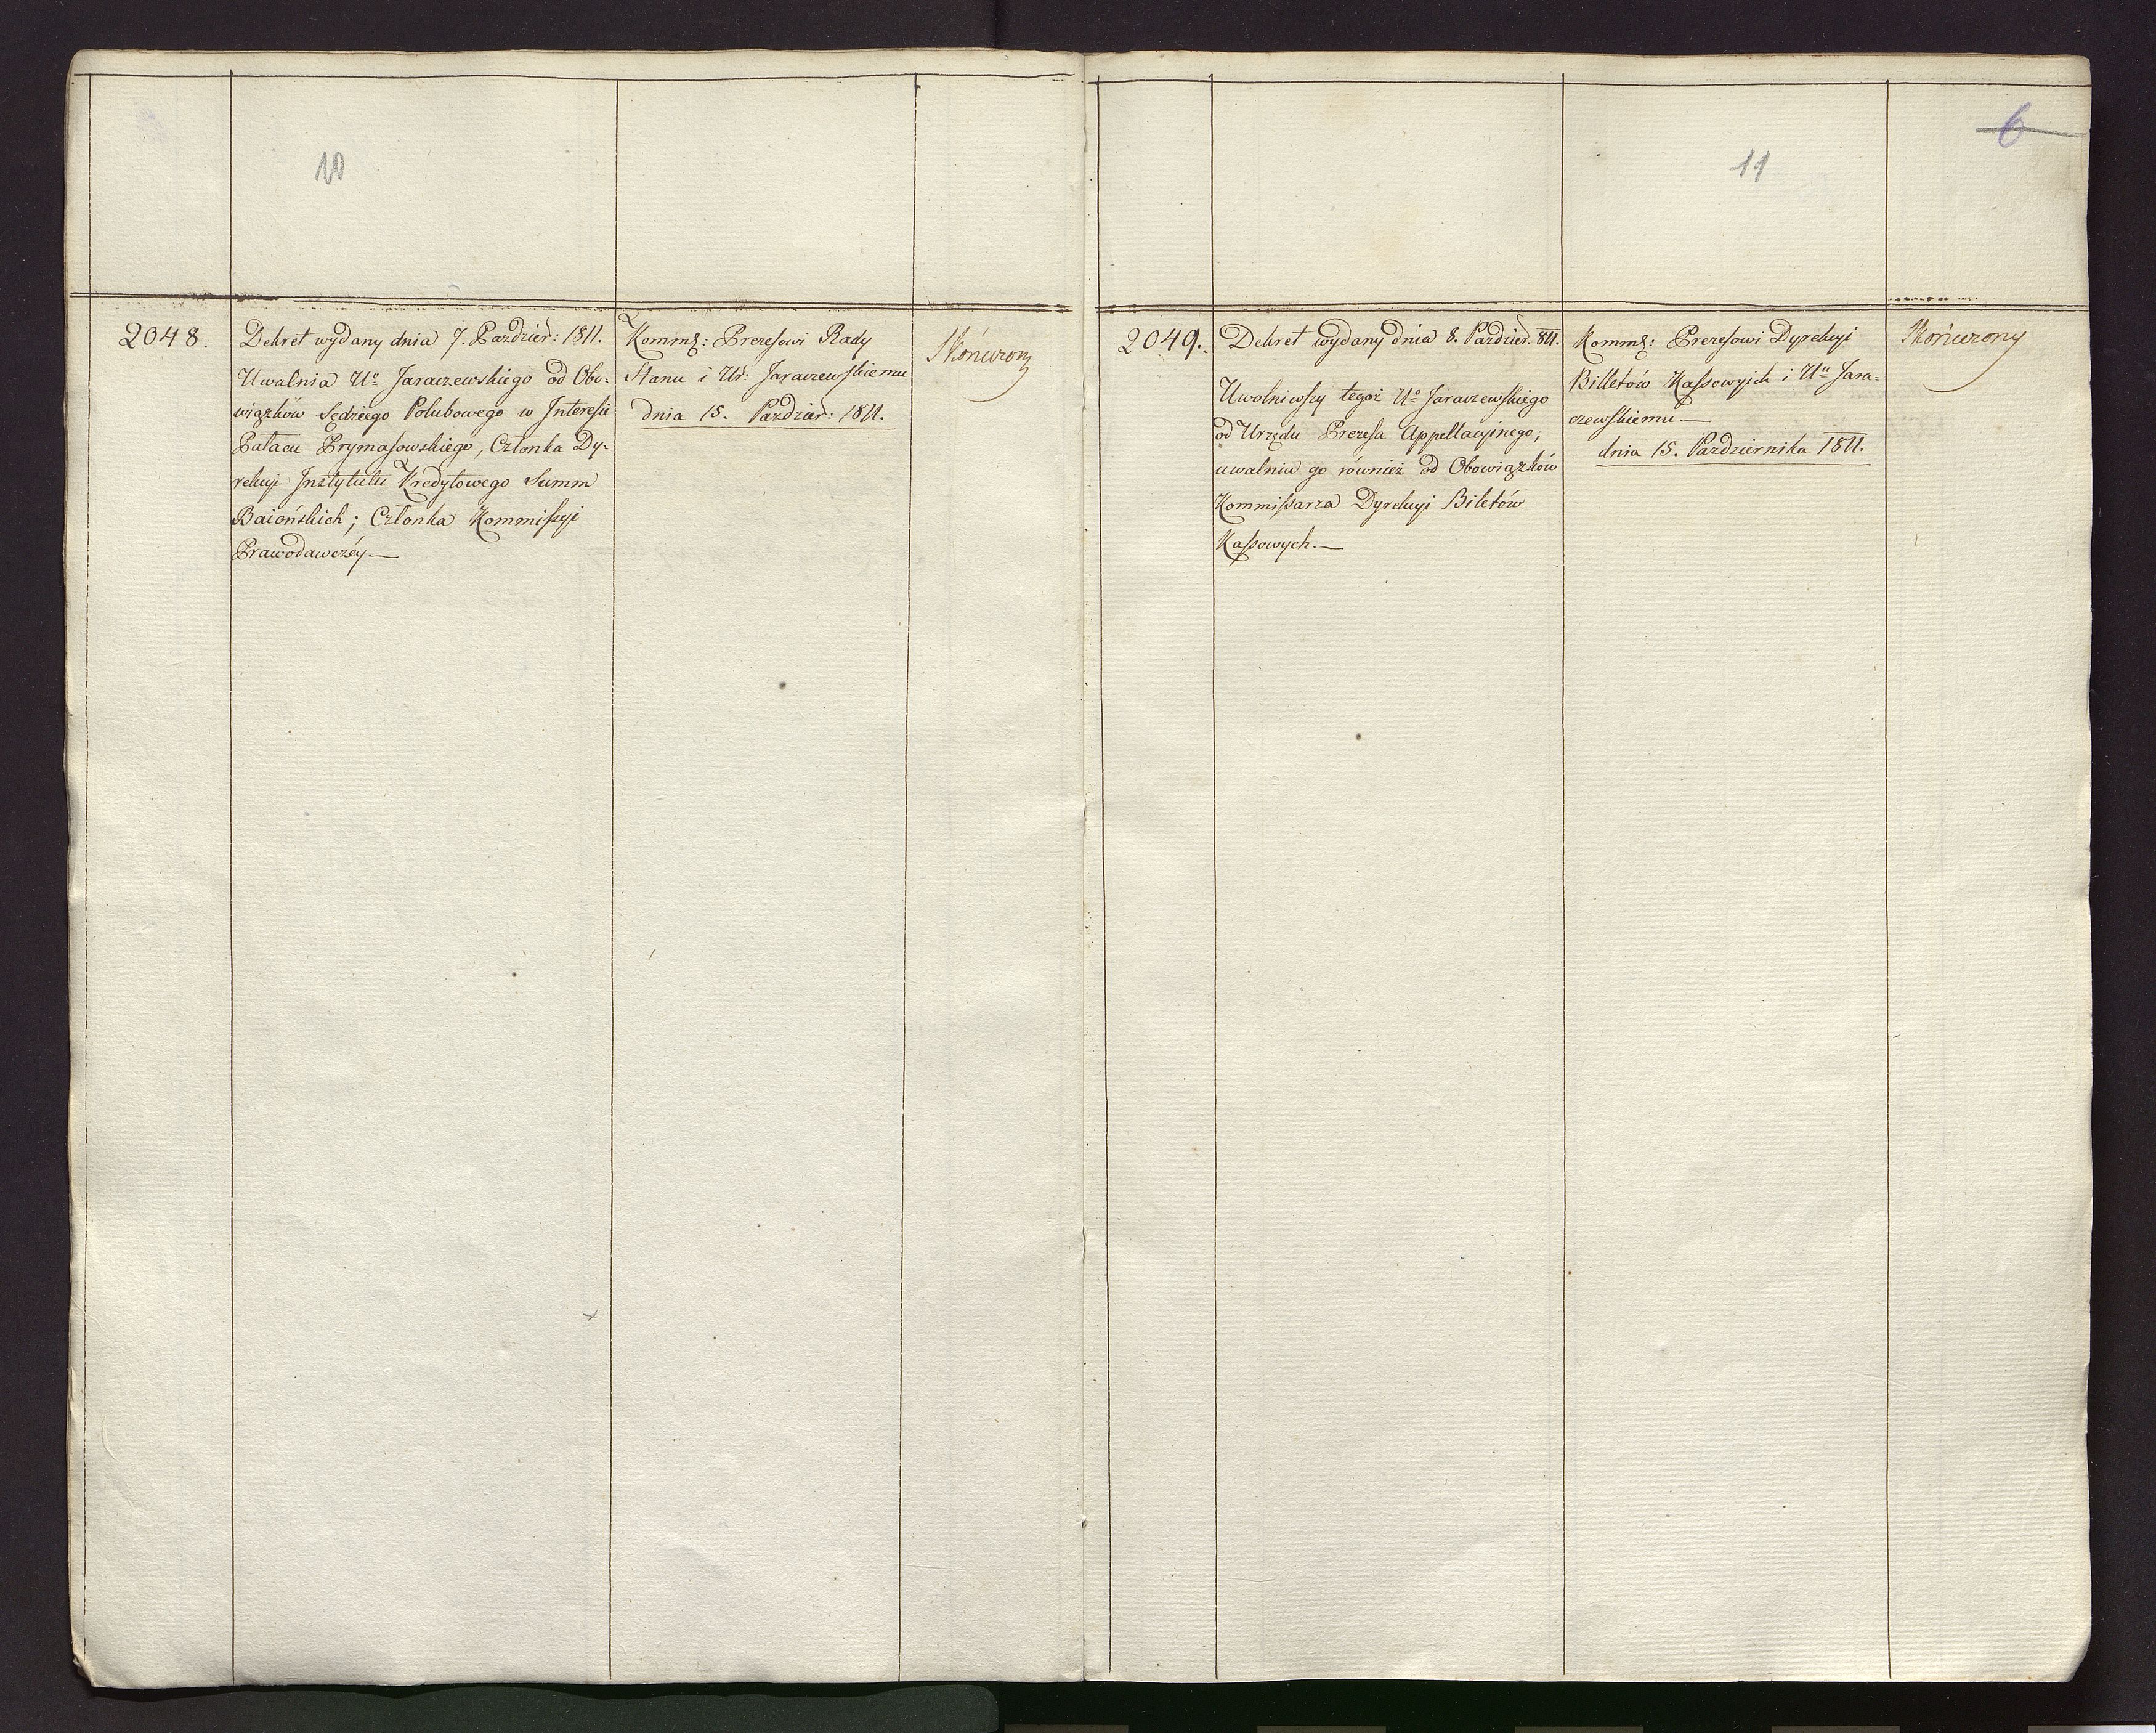 10
2048.
Dekret wydany dnia 7. Paźdźier: 1811.
Uwalnia Uo Jaraczewskiego od Obo-
wiązków Sędziego Polubowego w Interesie
Pałacu Prymasowskiego, Członka Dy-
rekcyi Instytutu Kredytowego Summ
Baiońskich; Członka Kommissyi
Prawodawczéy.—
Prezesowi Rady
Stanu i Ur: Jaraczewskiemu
dnia 15. Paździer: 1811.
Skończony
6
11
2049.
Dekret wydany dnia 8. Paździer. 811.
Uwolniwszy tegoż Uo Jaraczewskiego
od Urzędu Prezesa Appellacyinego;
uwalnia go również od Obowiązków
Kommissarza Dyrekcyi Biletów
Kassowych.—
Prezesowi Dyrekcyi
Billetów Kassowych i Uu Jara-
czewskiemu—
dnia 15. Października 1811.
Skończony